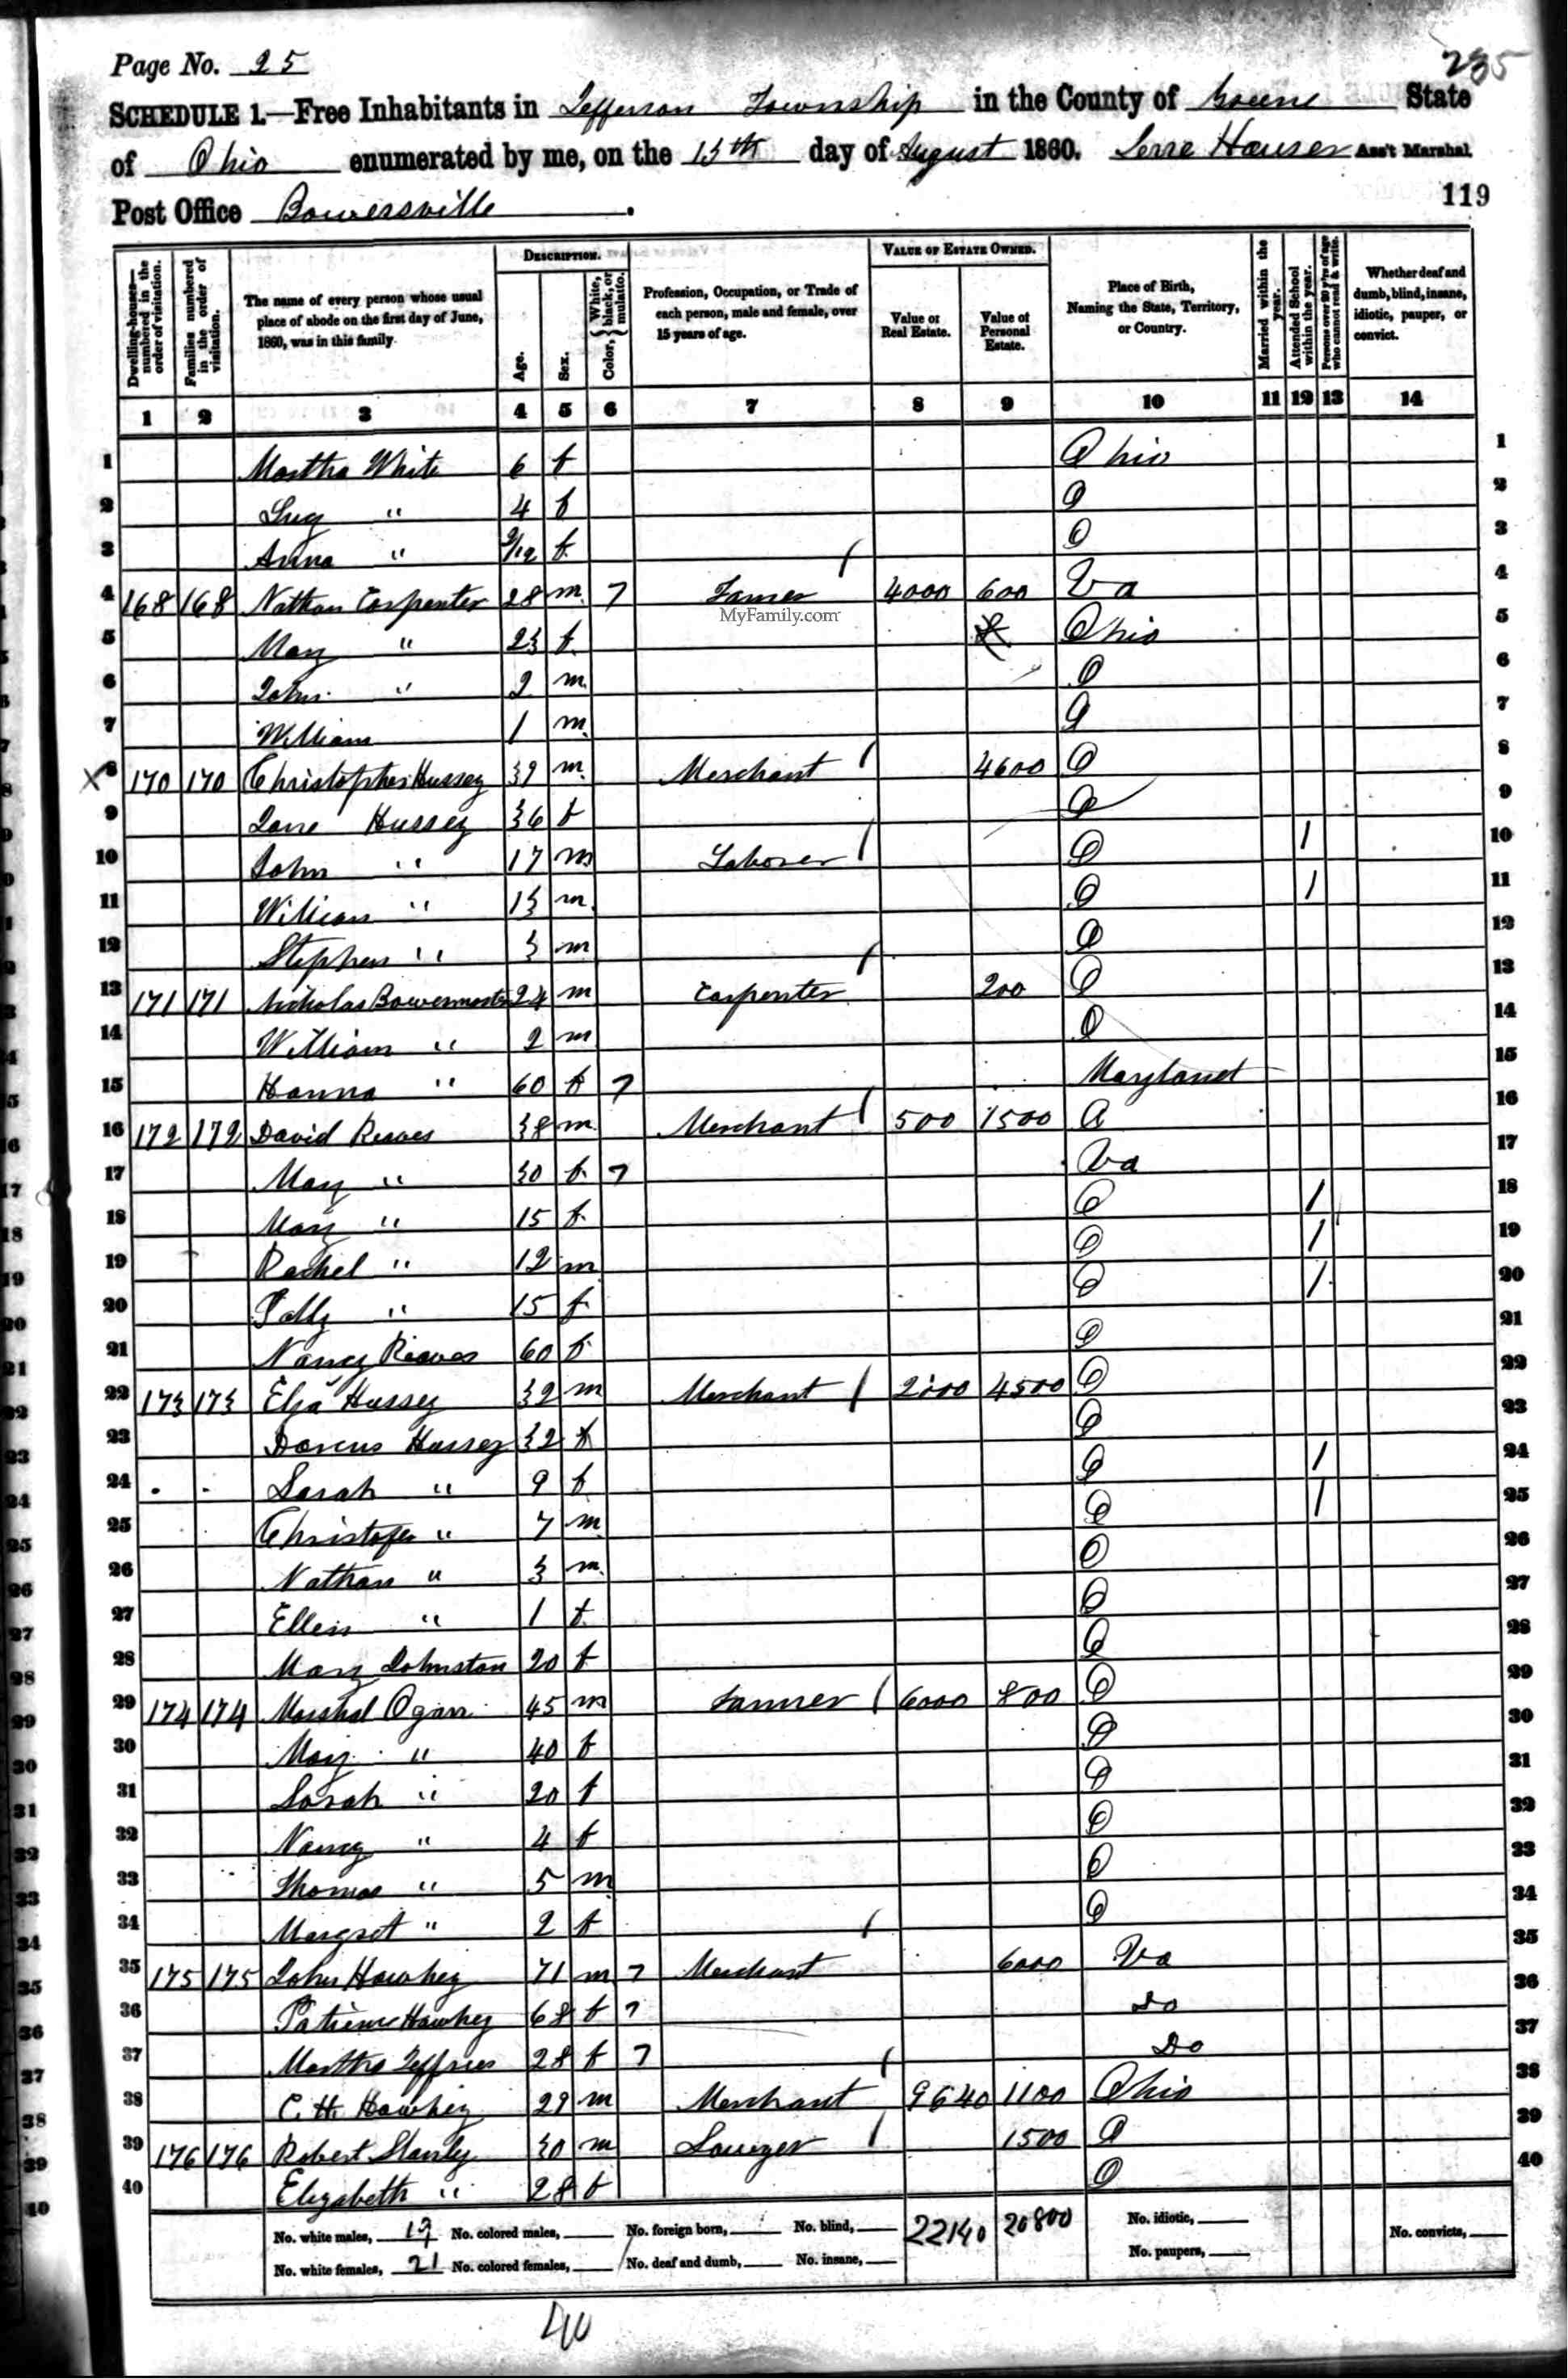 Page No. 25
235
SCHEDULE 1.—Free Inhabitants in Jefferson Township in the County of Greene State
of Ohio enumerated by me, on the 13th day of August 1860. Hauser Ass't Marshal.
119
Post Office Bowersville.
Dwelling-houses—numbered in the order of visitation.
Families numbered in the order of visitation.
The name of every person whose usual place of abode on the first day of June, 1860, was in this family.
DESCRIPTION.
Age.
Sex.
Color, { White, black, or mulatto.
Profession, Occupation, or Trade of each person, male and female, over 15 years of age.
VALUE OF ESTATE OWNED.
Value of Real Estate.
Value of Personal Estate.
Place of Birth, Naming the State, Territory, or Country.
Married within the year.
Attended School within the year.
Persons over 20 y'rs of age who cannot read & write.
Whether deaf and dumb, blind, insane, idiotic, pauper, or convict.
1 2 3 4 5 6 7 8 9 10 11 12 13 14
1 Martha White 6 f Ohio 1
2 Lucy " 4 f O 2
3 Anna " 9/12 f O 3
4 168 168 Nathan Carpenter 28 m 7 Farmer 4000 600 Va 4
MyFamily.com
5 Mary " 23 f Ohio 5
6 John " 2 m O 6
7 William 1 m O 7
X 8 170 170 Christopher Hussey 39 m Merchant / 4600 O 8
9 Jane Hussey 36 f O 9
10 John " 17 m Laborer / O / 10
11 William " 13 m O / 11
12 Stephen " 3 m O 12
13 171 171 Nicholas Bowermaster 24 m Carpenter 200 O 13
14 William " 2 m O 14
15 Hanna " 60 f 7 Maryland 15
16 172 172 David Reaves 38 m Merchant / 500 1500 O 16
17 Mary " 30 f 7 Va 17
18 Mary " 15 f O / 18
19 Rachel " 12 m O / 19
20 Polly " 15 f O / 20
21 Nancy Reaves 60 f O 21
22 173 173 Elja Hussey 32 m Merchant / 2000 4500 O 22
23 Darcus Hussey 32 f O 23
24 Sarah " 9 f O / 24
25 Christofer " 7 m O / 25
26 Nathan " 3 m O 26
27 Ellen " 1 f O 27
28 Mary Johnston 20 f O 28
29 174 174 Marshal Ogan 45 m Farmer / 6000 800 O 29
30 Mary " 40 f O 30
31 Sarah " 20 f O 31
32 Nancy " 4 f O 32
33 Thomas " 5 m O 33
34 Margret " 2 f O 34
35 175 175 John Hawkey 71 m 7 Merchant 6000 Va 35
36 Patience Hawkey 68 f 7 Do 36
37 Martha Jeffries 28 f 7 Do 37
38 C. H. Hawkey 29 m Merchant 9640 1100 Ohio 38
39 176 176 Robert Stanly 30 m Lawyer / 1500 O 39
40 Elizabeth " 28 f O 40
No. white males, 19 No. colored males, No. foreign born, No. blind, 22140 20800 No. idiotic, No. convicts,
No. white females, 21 No. colored females, No. deaf and dumb, No. insane, No. paupers,
40